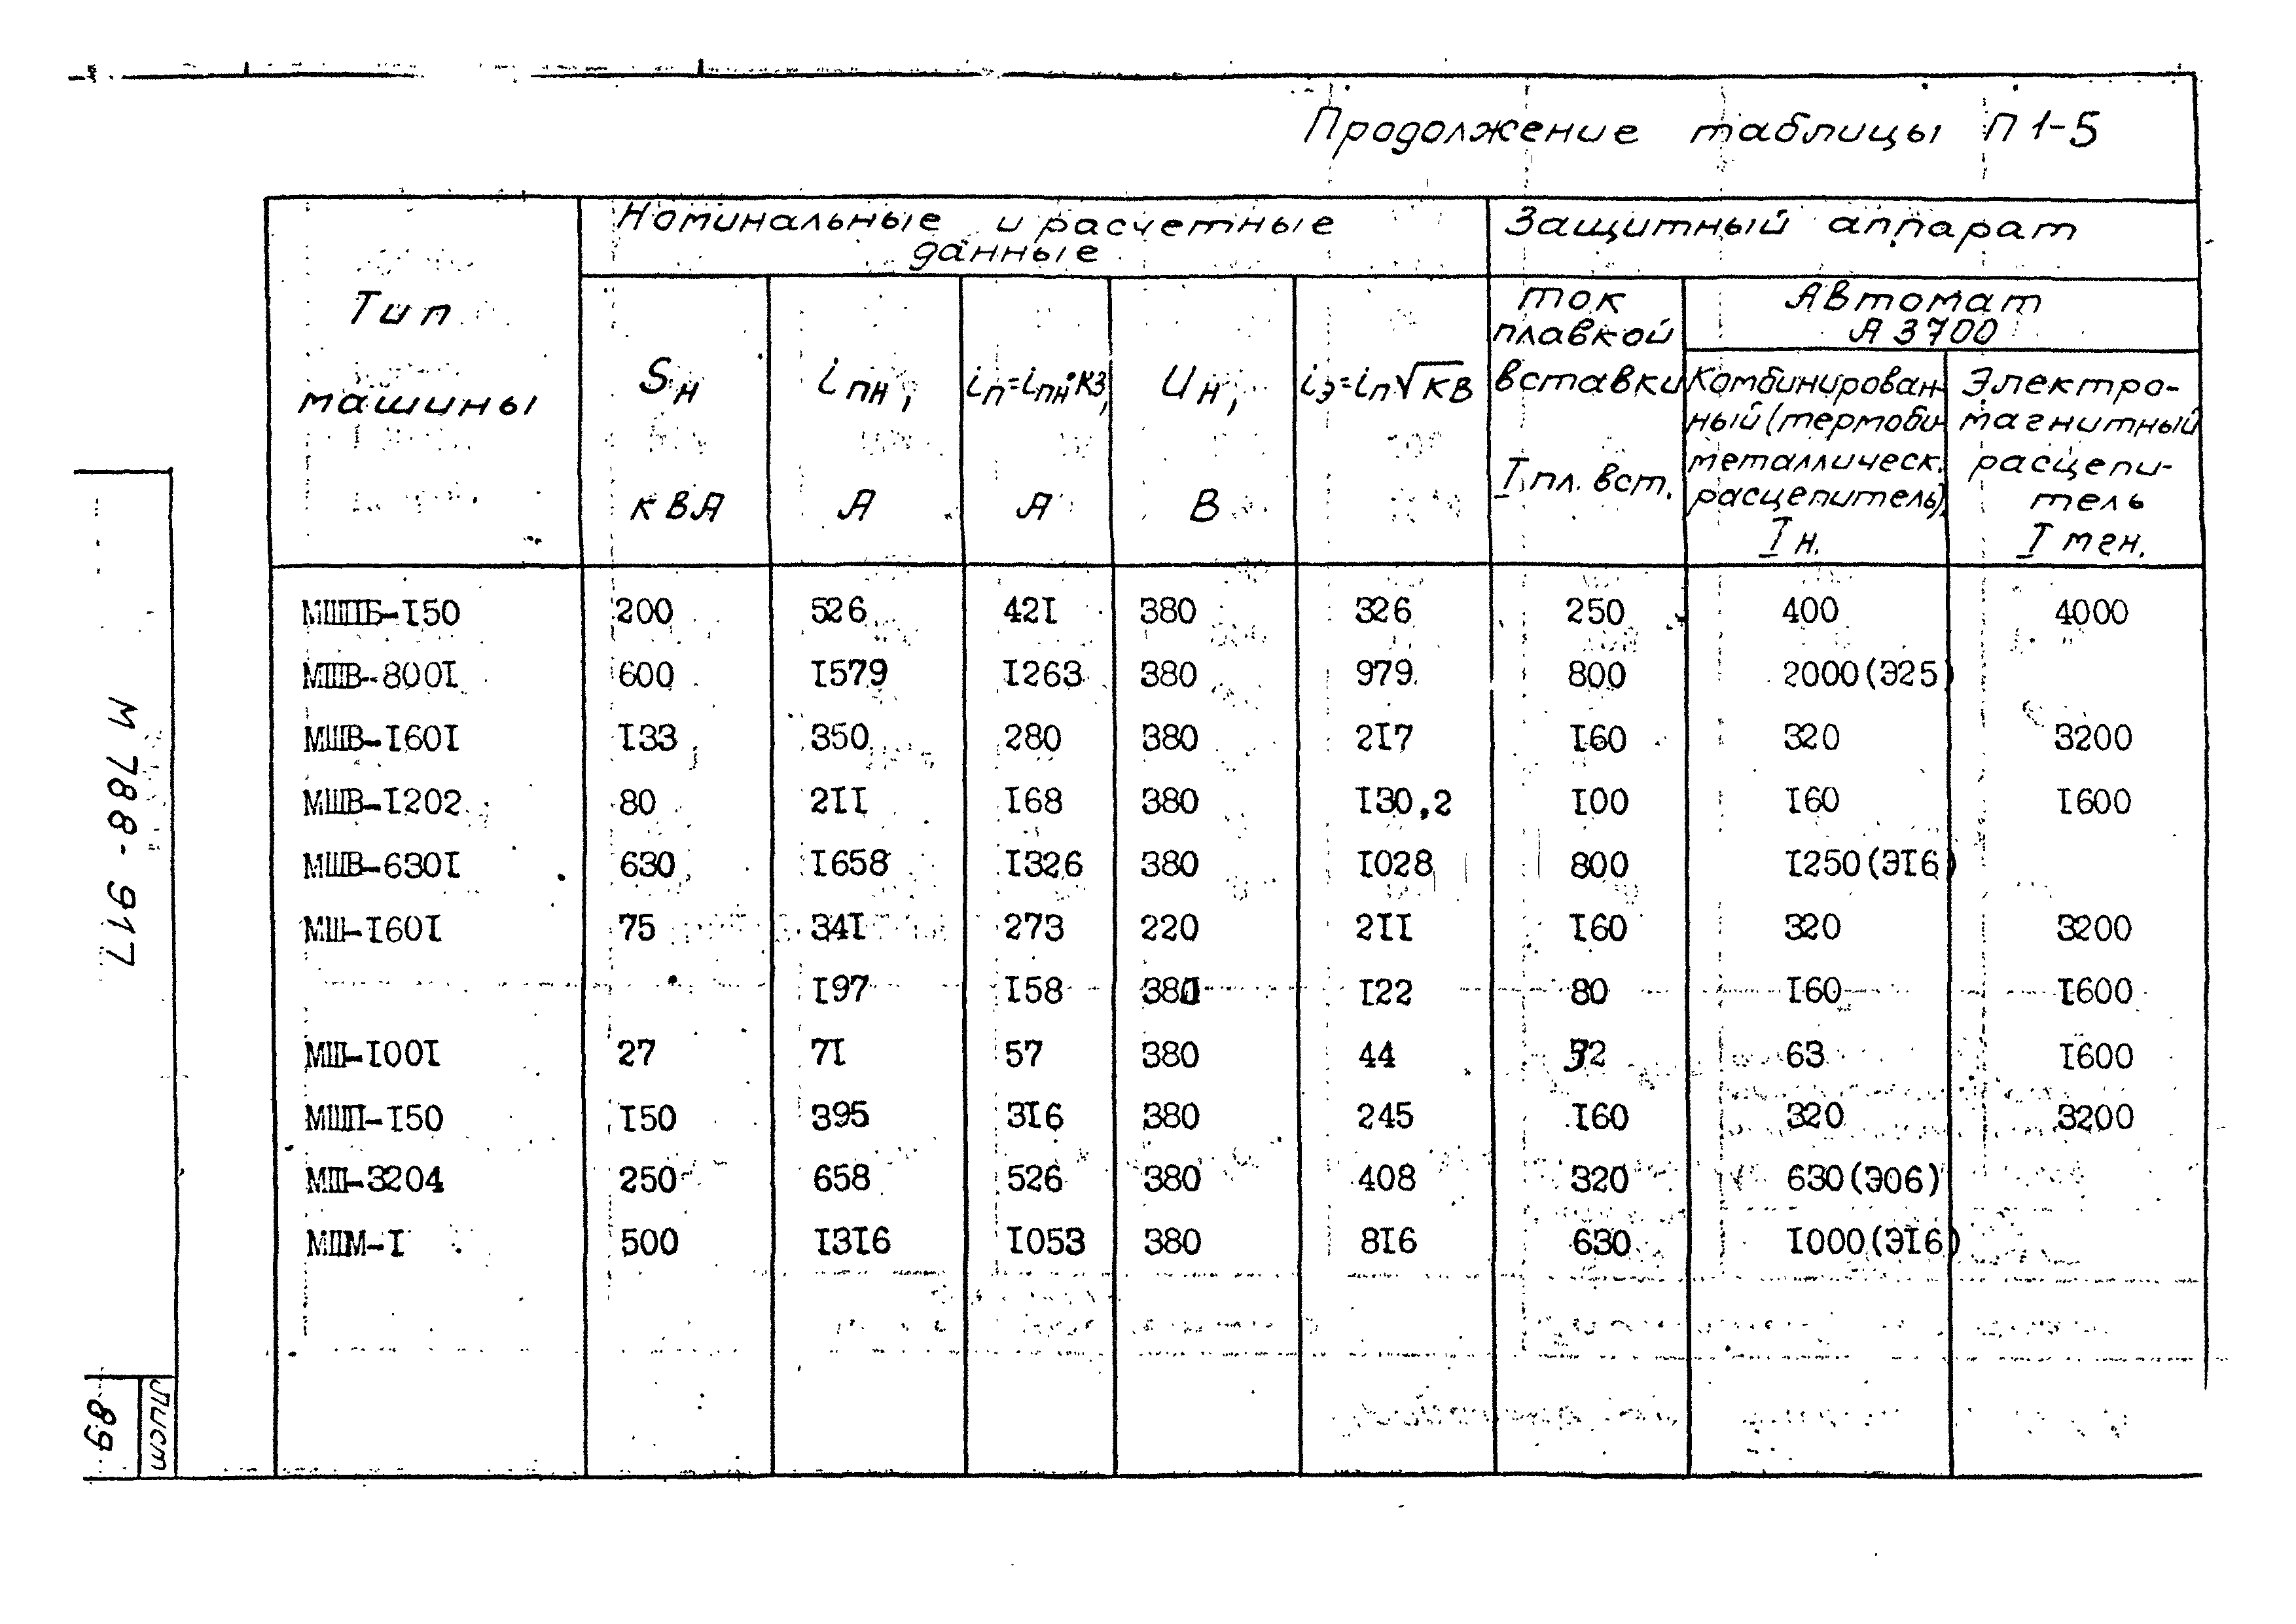 Продолжение таблицы П 1-5
Тип машины
Номинальные и расчетные данные
Защитный аппарат
Sн кВА
iпн, А
iп=iпн·КЗ, А
Uн, В
iэ=iп√КВ
ток плавкой вставки Iпл. вст.
Автомат А 3700
Комбинирован-
ный (термоби-
металлическ.
расцепитель)
Iн.
Электро-
магнитный
расцепи-
тель
I мгн.
МШПБ-I50 200 526 42I 380 326 250 400 4000
МШВ-800I 600 I579 I263 380 979 800 2000(Э25)
МШВ-I60I I33 350 280 380 2I7 I60 320 3200
МШВ-I202 80 2II I68 380 I30,2 I00 I60 I600
МШВ-630I 630 I658 I326 380 I028 800 I250(ЭI6)
МШ-I60I 75 34I 273 220 2II I60 320 3200
I97 I58 380 I22 80 I60 I600
МШ-I00I 27 7I 57 380 44 32 63 I600
МШП-I50 I50 395 3I6 380 245 I60 320 3200
МШ-3204 250 658 526 380 408 320 630(Э06)
МШМ-I 500 I3I6 I053 380 8I6 630 I000(ЭI6)
М 788-917
Лист
89